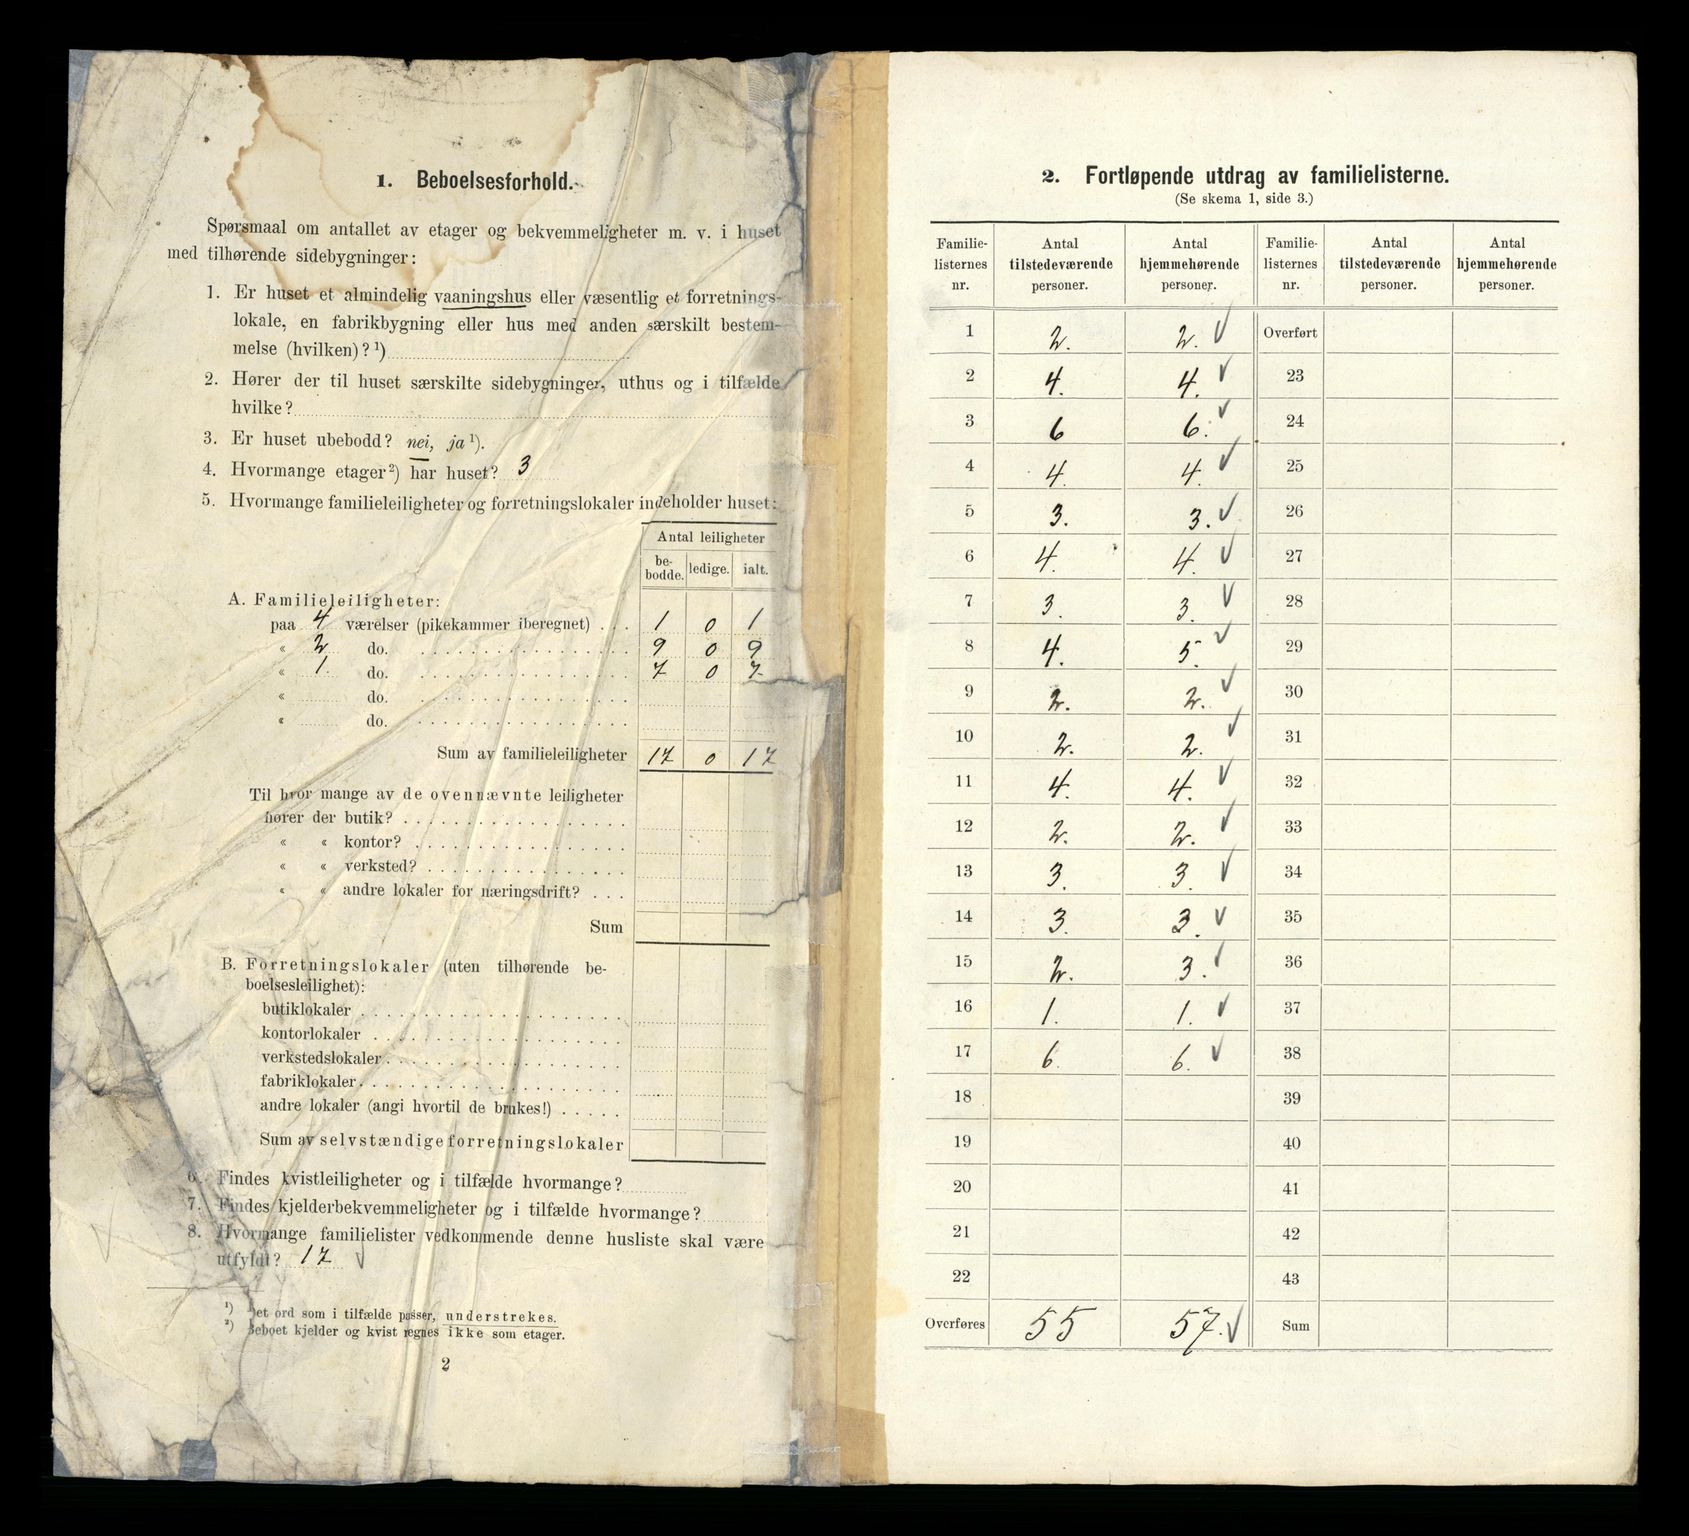 1. Beboelsesforhold.
Spørsmaal om antallet av etager og bekvemmeligheter m. v. i huset
med tilhørende sidebygninger:
1. Er huset et almindelig vaaningshus eller væsentlig et forretnings-
lokale, en fabrikbygning eller hus med anden særskilt bestem-
melse (hvilken)? ¹)
2. Hører der til huset særskilte sidebygninger, uthus og i tilfælde
hvilke?
3. Er huset ubebodd? nei, ja ¹).
4. Hvormange etager ²) har huset? 3
5. Hvormange familieleiligheter og forretningslokaler indeholder huset:
Antal leiligheter
be-
bodde. ledige. ialt.
A. Familieleiligheter:
paa 4 værelser (pikekammer iberegnet) . . . 1 0 1
« 2 do. 9 0 9
« 1. do. 7 0 7
« do.
« do.
Sum av familieleiligheter 17 0 17
Til hvor mange av de ovennævnte leiligheter
hører der butik?
« « kontor?
« « verksted?
« « andre lokaler for næringsdrift?
Sum
B. Forretningslokaler (uten tilhørende be-
boelsesleilighet):
butiklokaler
kontorlokaler
verkstedslokaler
fabriklokaler
andre lokaler (angi hvortil de brukes!)
Sum av selvstændige forretningslokaler
6. Findes kvistleiligheter og i tilfælde hvormange?
7. Findes kjelderbekvemmeligheter og i tilfælde hvormange?
8. Hvormange familielister vedkommende denne husliste skal være
utfyldt? 17 √
¹) Det ord som i tilfælde passer, understrekes.
²) Beboet kjelder og kvist regnes ikke som etager.
2
2. Fortløpende utdrag av familielisterne.
(Se skema 1, side 3.)
Familie- Antal Antal Familie- Antal Antal
listernes tilstedeværende hjemmehørende listernes tilstedeværende hjemmehørende
nr. personer. personer. nr. personer. personer.
1 2. 2. √ Overført
2 4. 4. √ 23
3 6 6. √ 24
4 4. 4. √ 25
5 3. 3. √ 26
6 4. 4. √ 27
7 3. 3. √ 28
8 4. 5. √ 29
9 2. 2. √ 30
10 2. 2. √ 31
11 4. 4. √ 32
12 2. 2. √ 33
13 3. 3. √ 34
14 3. 3. √ 35
15 2. 3. √ 36
16 1. 1. √ 37
17 6. 6. √ 38
18 39
19 40
20 41
21 42
22 43
Overføres 55 57. √ Sum